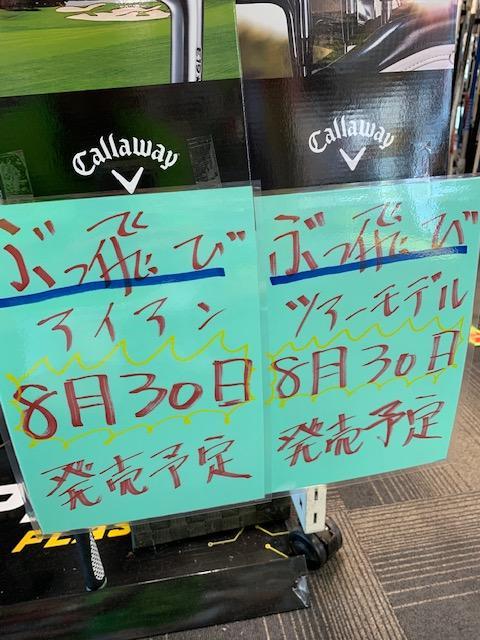 Callaway
ぶっ飛び
アイアン
8月30日
発売予定
Callaway
ぶっ飛び
ツアーモデル
8月30日
発売予定